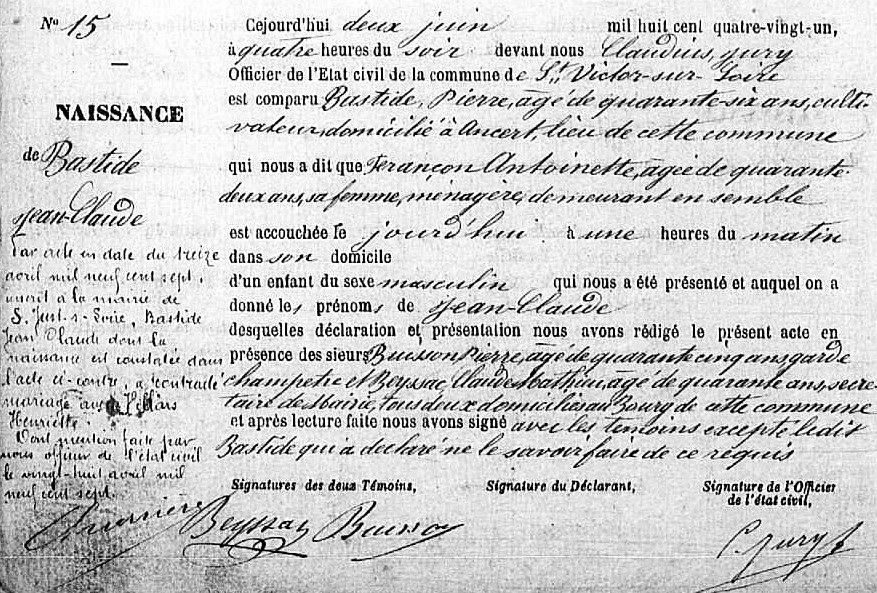 No 15
NAISSANCE
de Bastide
Jean-Claude
Par acte en date du treize
avril mil neuf cent sept,
inscrit à la mairie de
S. Just-s-Loire, Bastide
Jean Claude dont la
naissance est constatée dans
l'acte ci-contre, a contracté
mariage avec
Henriette.
Dont mention faite par
nous officier de l'état civil
le vingt-huit avril mil
neuf cent sept.
Cejourd'hui deux juin mil huit cent quatre-vingt-un,
à quatre heures du soir devant nous Claudius Jury
Officier de l'Etat civil de la commune de St Victor-sur-Loire
est comparu Bastide, Pierre, agé de quarante-six ans, culti-
vateur, domicilié à Ancert, lieu de cette commune
qui nous a dit que Ferançon Antoinette, agée de quarante-
deux ans, sa femme, ménagère, demeurant en semble
est accouchée le jourd'hui à une heures du matin
dans son domicile
d'un enfant du sexe masculin qui nous a été présenté et auquel on a
donné les prénoms de Jean-Claude
desquelles déclaration et présentation nous avons rédigé le présent acte en
présence des sieurs Buisson Pierre, agé de quarante cinq ans, garde
champetre et Beyssac, Claude Mathieu, agé de quarante ans, secré-
taire de Mairie, tous deux domiciliés au Bourg de cette commune
et après lecture faite nous avons signé avec les témoins excepté ledit
Bastide qui a déclaré ne le savoir faire de ce requis
Signatures des deux Témoins, Signature du Déclarant, Signature de l'Officier
de l'état civil,
Beyssac Buisson
C. Jury